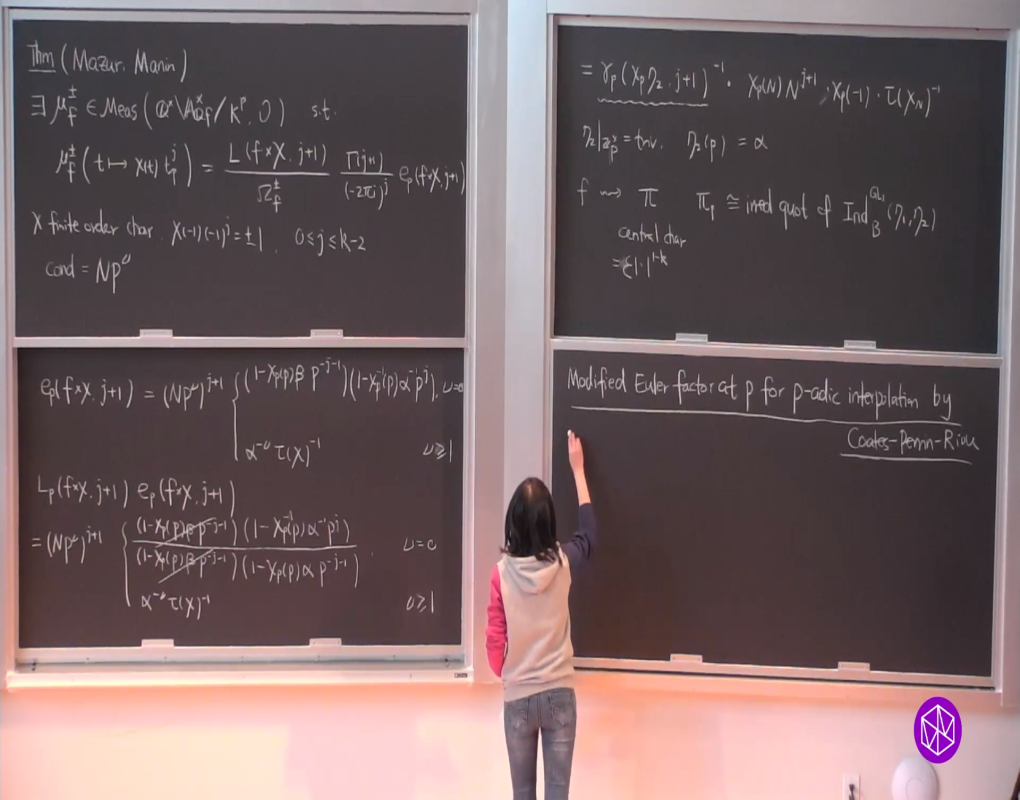 Thm (Mazur. Manin)
∃ μ_f^± ∈ Meas (Q^×\A_{Q,f}^×/K^p, O) s.t.
μ_f^± (t ↦ χ(t) t_p^j) = L(f×χ, j+1) / Ω_f^± Γ(j+1) / (-2πi)^j e_p(f×χ, j+1)
χ finite order char. χ(-1)(-1)^j = ±1, 0≤j≤k-2
cond = Np^υ
e_p(f×χ, j+1) = (Np^υ)^{j+1} { (1-χ_p(p)β p^{-j-1})(1-χ_p^{-1}(p)α^{-1}p^j), υ=0
α^{-υ} τ(χ)^{-1} υ≥1
L_p(f×χ, j+1) e_p(f×χ, j+1)
= (Np^υ)^{j+1} { (1-χ_p(p)β p^{-j-1})(1-χ_p^{-1}(p)α^{-1}p^j) / (1-χ_p(p)β p^{-j-1})(1-χ_p(p)α p^{-j-1}), υ=0
α^{-υ} τ(χ)^{-1} υ≥1
= γ_p(χ_p η_2, j+1)^{-1} · χ_p(N) N^{j+1} · χ_p(-1) · τ(χ_N)^{-1}
η_2|_{Z_p^×} = triv. η_2(p) = α
f ⇝ π π_p ≅ irred quot of Ind_B^{GL_2} (η_1, η_2)
central char
= ε|·|^{1-k}
Modified Euler factor at p for p-adic interpolation by
Coates-Perrin-Riou